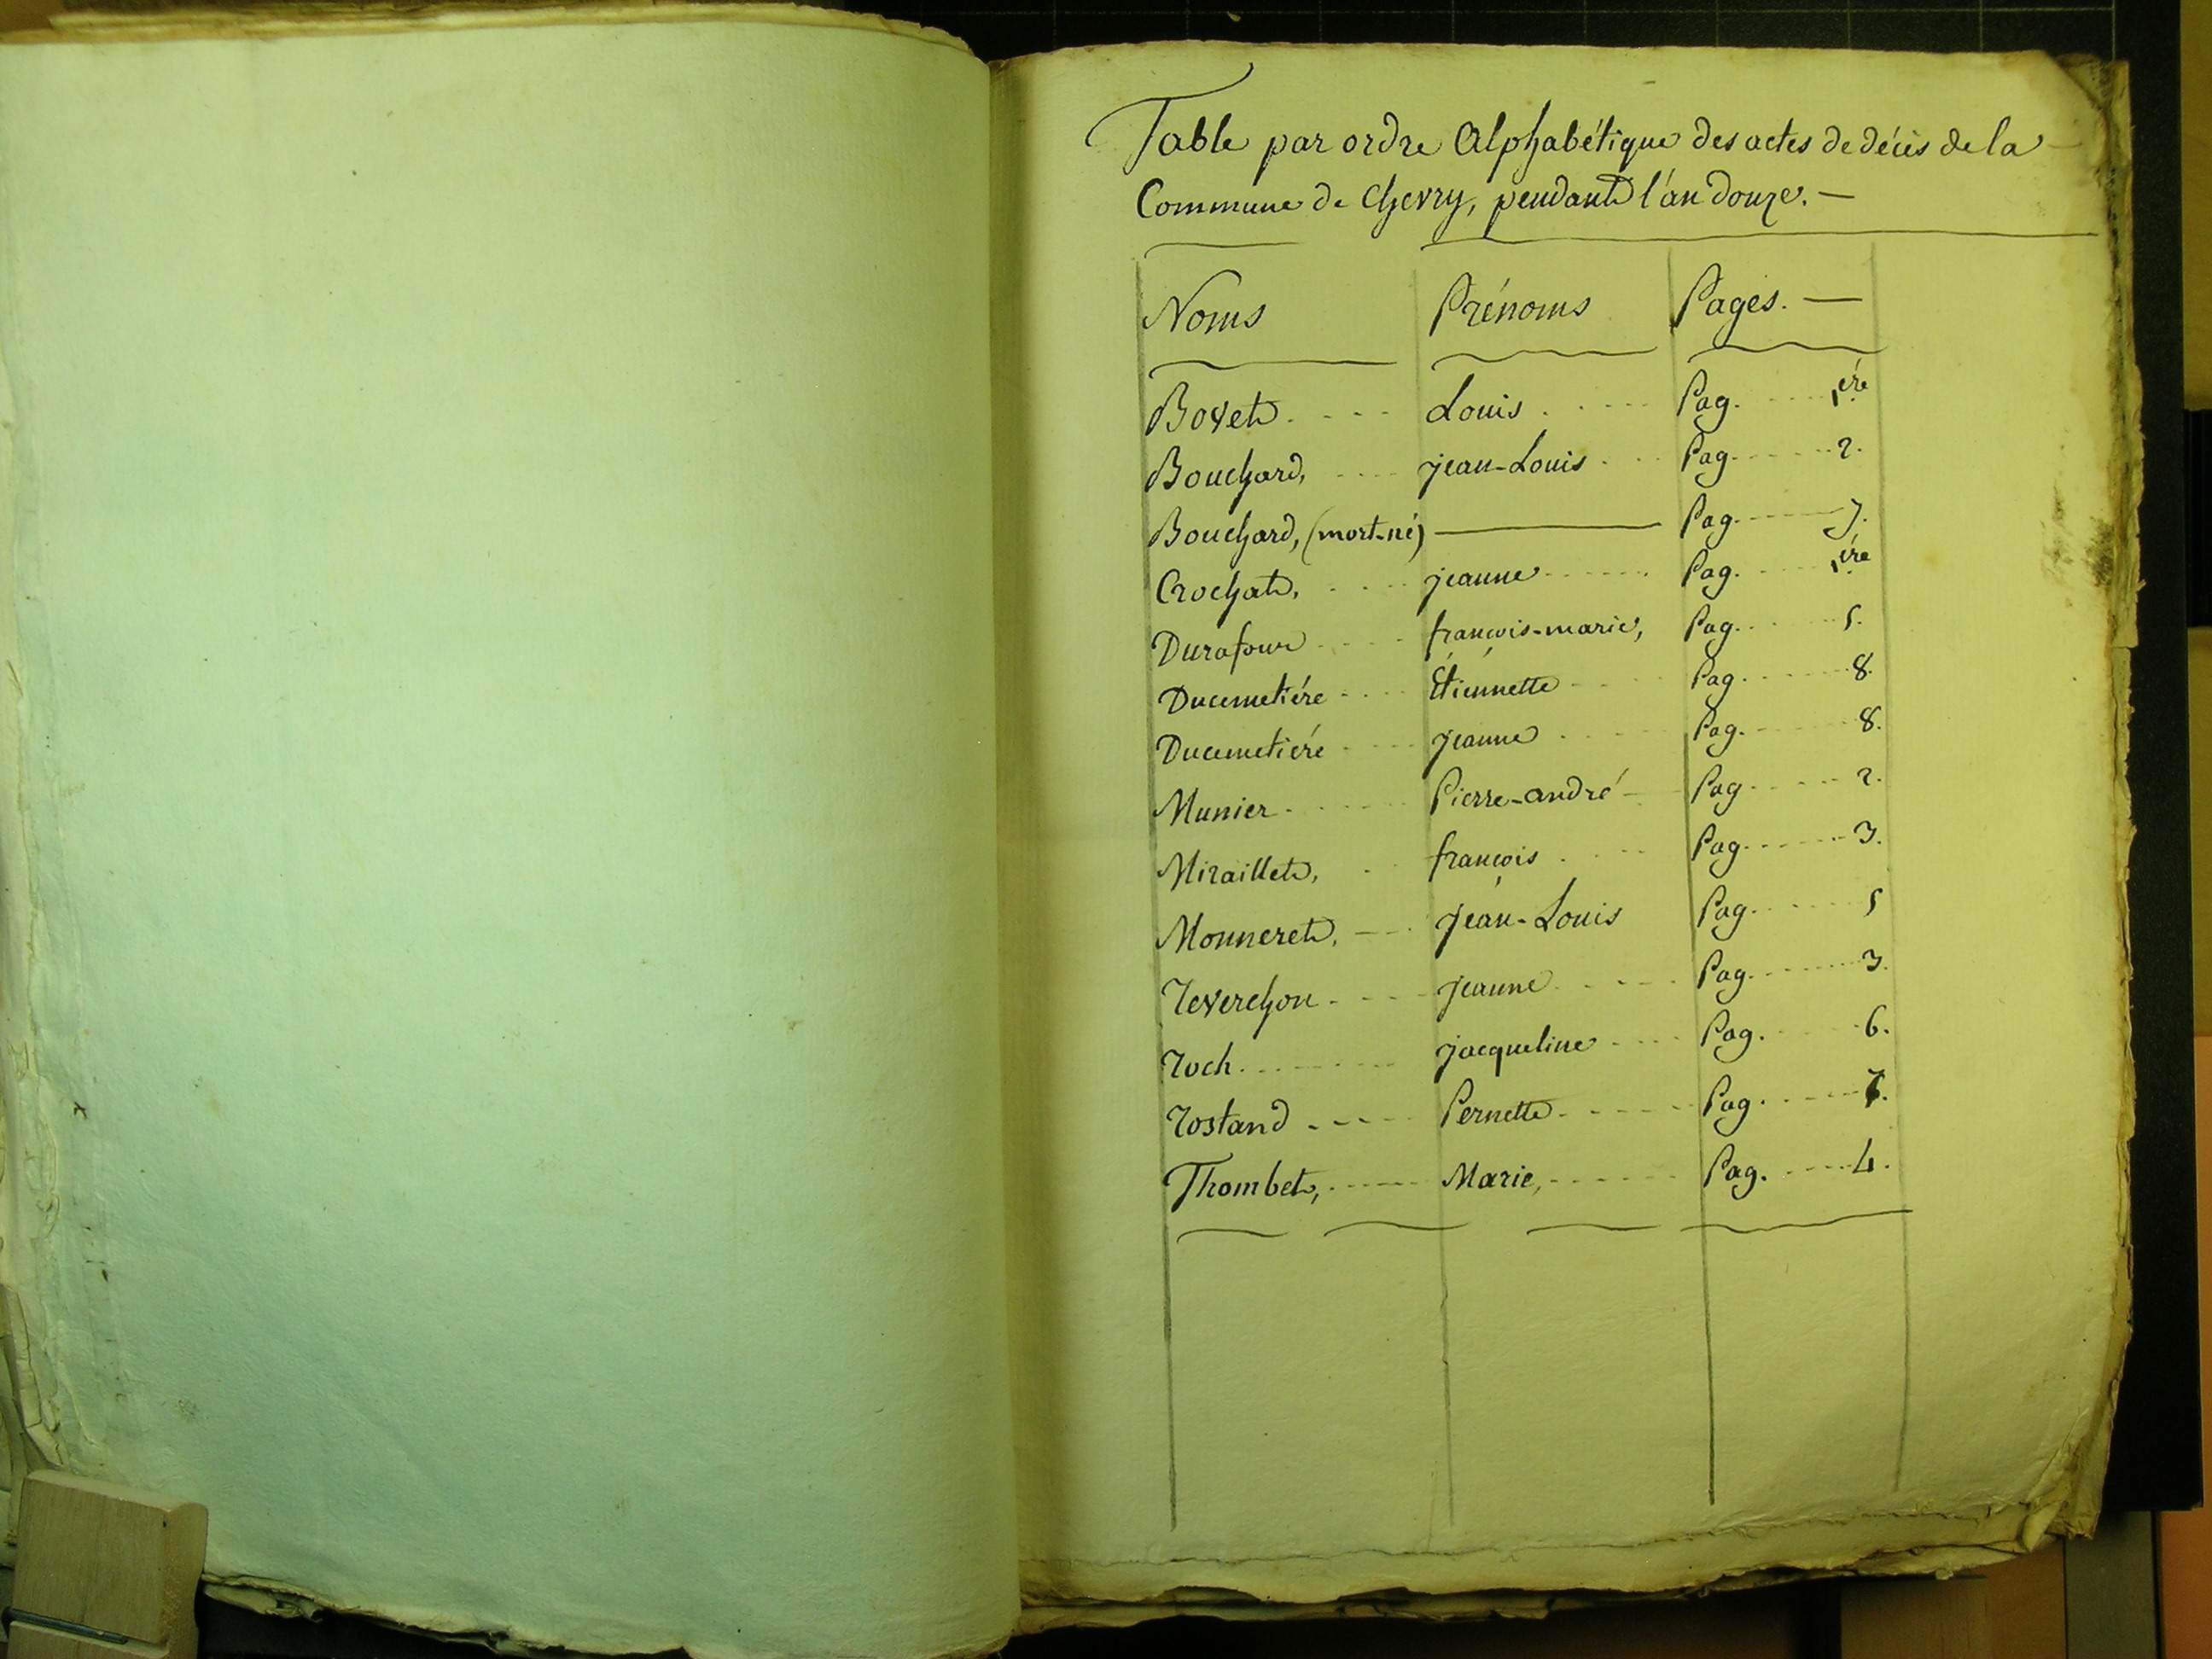 Table par ordre Alphabétique des actes de décès de la
Commune de Chevry, pendant l'an douze. —
Noms Prénoms Pages. —
Bovet. Louis . Pag. 1.ére
Bouchard, jean-Louis Pag. 2.
Bouchard, (mort-né) — Pag. 7.
Crochat, jeanne Pag. 1.ére
Durafour françois-marie, Pag. 5.
Ducimetiére Étiennette Pag. 8.
Ducimetiére jeanne Pag. 8.
Munier Pierre-andré Pag. 2.
Miraillet, françois Pag. 3.
Monneret, jean-Louis Pag. 5
Reverchon jeanne Pag. 3.
Roch jacqueline Pag. 6.
Rostand Pernette Pag.
Thombet, Marie, Pag. 4.